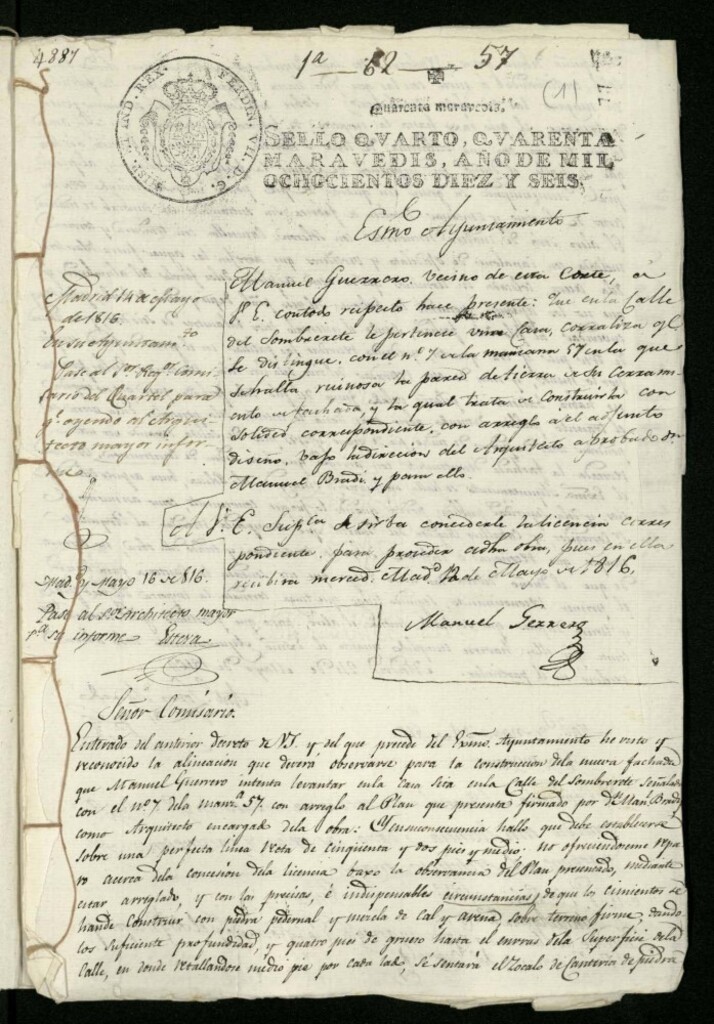 4887
1a — 62 — 57
(1)
HISP. ET IND. REX. FERDIN. VII. D. G.
Quarenta maravedis.
SELLO QVARTO, QVARENTA
MARAVEDIS, AÑO DE MIL
OCHOCIENTOS DIEZ Y SEIS.
Exmo Ayuntamiento
Manuel Guerrero, vecino de esta Corte, a
V. E. con todo respeto hace presente: Que en la Calle
del Sombrerete le pertenece una Casa, corraliza q.e
se distingue, con el n.º 7 de la manzana 57 en la que
se halla ruinosa la pared de tierra de su cerrami
ento o fachada, y la qual trata de construirla con
solidéz correspondiente, con arreglo á el adjunto
diseño, bajo la direccion del Arquitecto aprobado Dn
Manuel Bradi y para ello.
A V. E. Sup.ca se sirva concederle la licencia corres
pondiente, para proceder a dha obra, pues en ello
recibirá merced. Mad.d 12 de Mayo de 1816.
Manuel Gerrero
Madrid 14 de Mayo
de 1816.
En su Ayuntam.to
Pase al Sor Regr. Comi
sario del Quartel para
q.e oyendo al Arqui
tecto mayor infor
me.
Mad.d y Mayo 16 de 816.
Pase al Sor Architecto mayor
p.a su informe Estera
Señor Comisario.
Enterado del anterior decreto de V.S. y del que precede del Exmo. Ayuntamiento he visto y
reconocido la alineacion que deverá observarse para la construccion dela nueva fachada
que Manuel Guerrero intenta levantar enla casa Sita enla Calle del Sombrerete Señalada
con el nº 7 dela manz.a 57. con arreglo al Plan que presenta firmado por Dn Man.l Bradi
como Arquitecto encargado dela obra: Y en su consecuencia hallo que debe establecerse
sobre una perfecta linea recta de cinquenta y dos pies y medio: no ofreciendoseme repa
ro acerca dela concesion dela licencia baxo la observancia del Plan presentado, mediante
estar arreglado, y con las precisas, é indispensables circunstancias, de que los cimientos se
hande construir con piedra pedernal y mezcla de Cal y arena sobre terreno firme, dando
los suficiente profundidad, y quatro pies de grueso hasta el enrras dela Superficie dela
Calle, en donde retallandose medio pie por cada lado, se sentará el Zocalo de Canteria de piedra